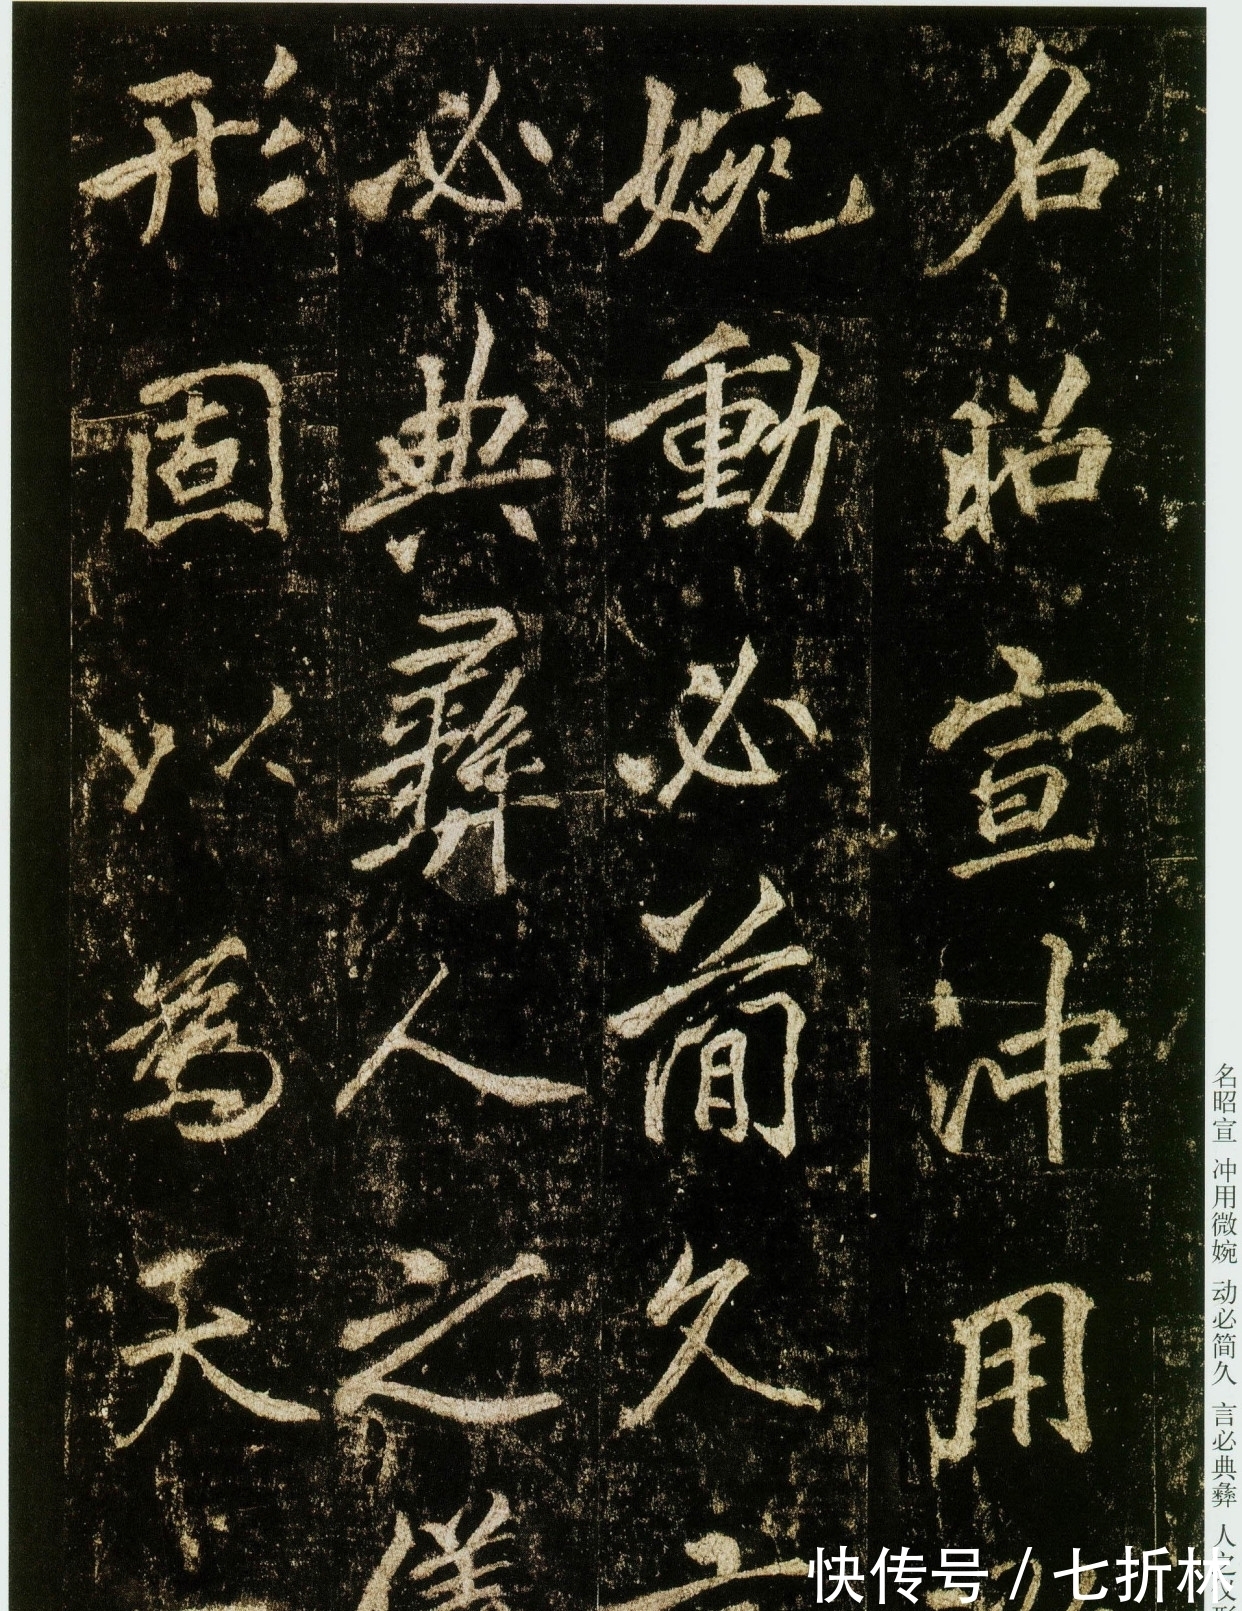 名昭宣冲用
婉動必簡久
必典彝人之儀
形固以為天
名昭宣 冲用微婉 动必简久 言必典彝 人之
快传号 / 七折林